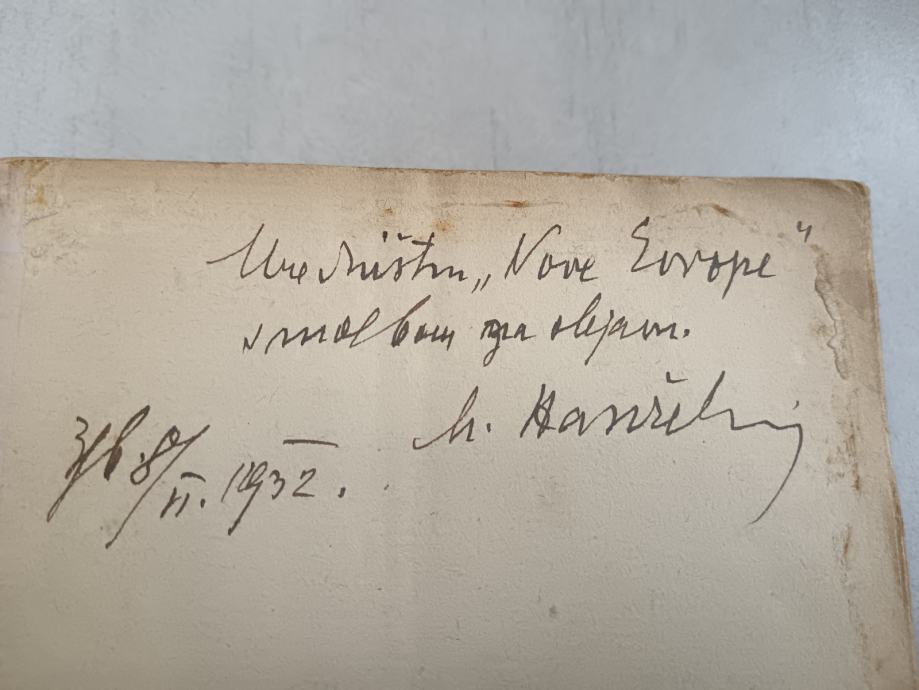 Uredništvu „Nove Evrope"
s molbom za objavu.
M.
Zgb. 8/II. 1932.